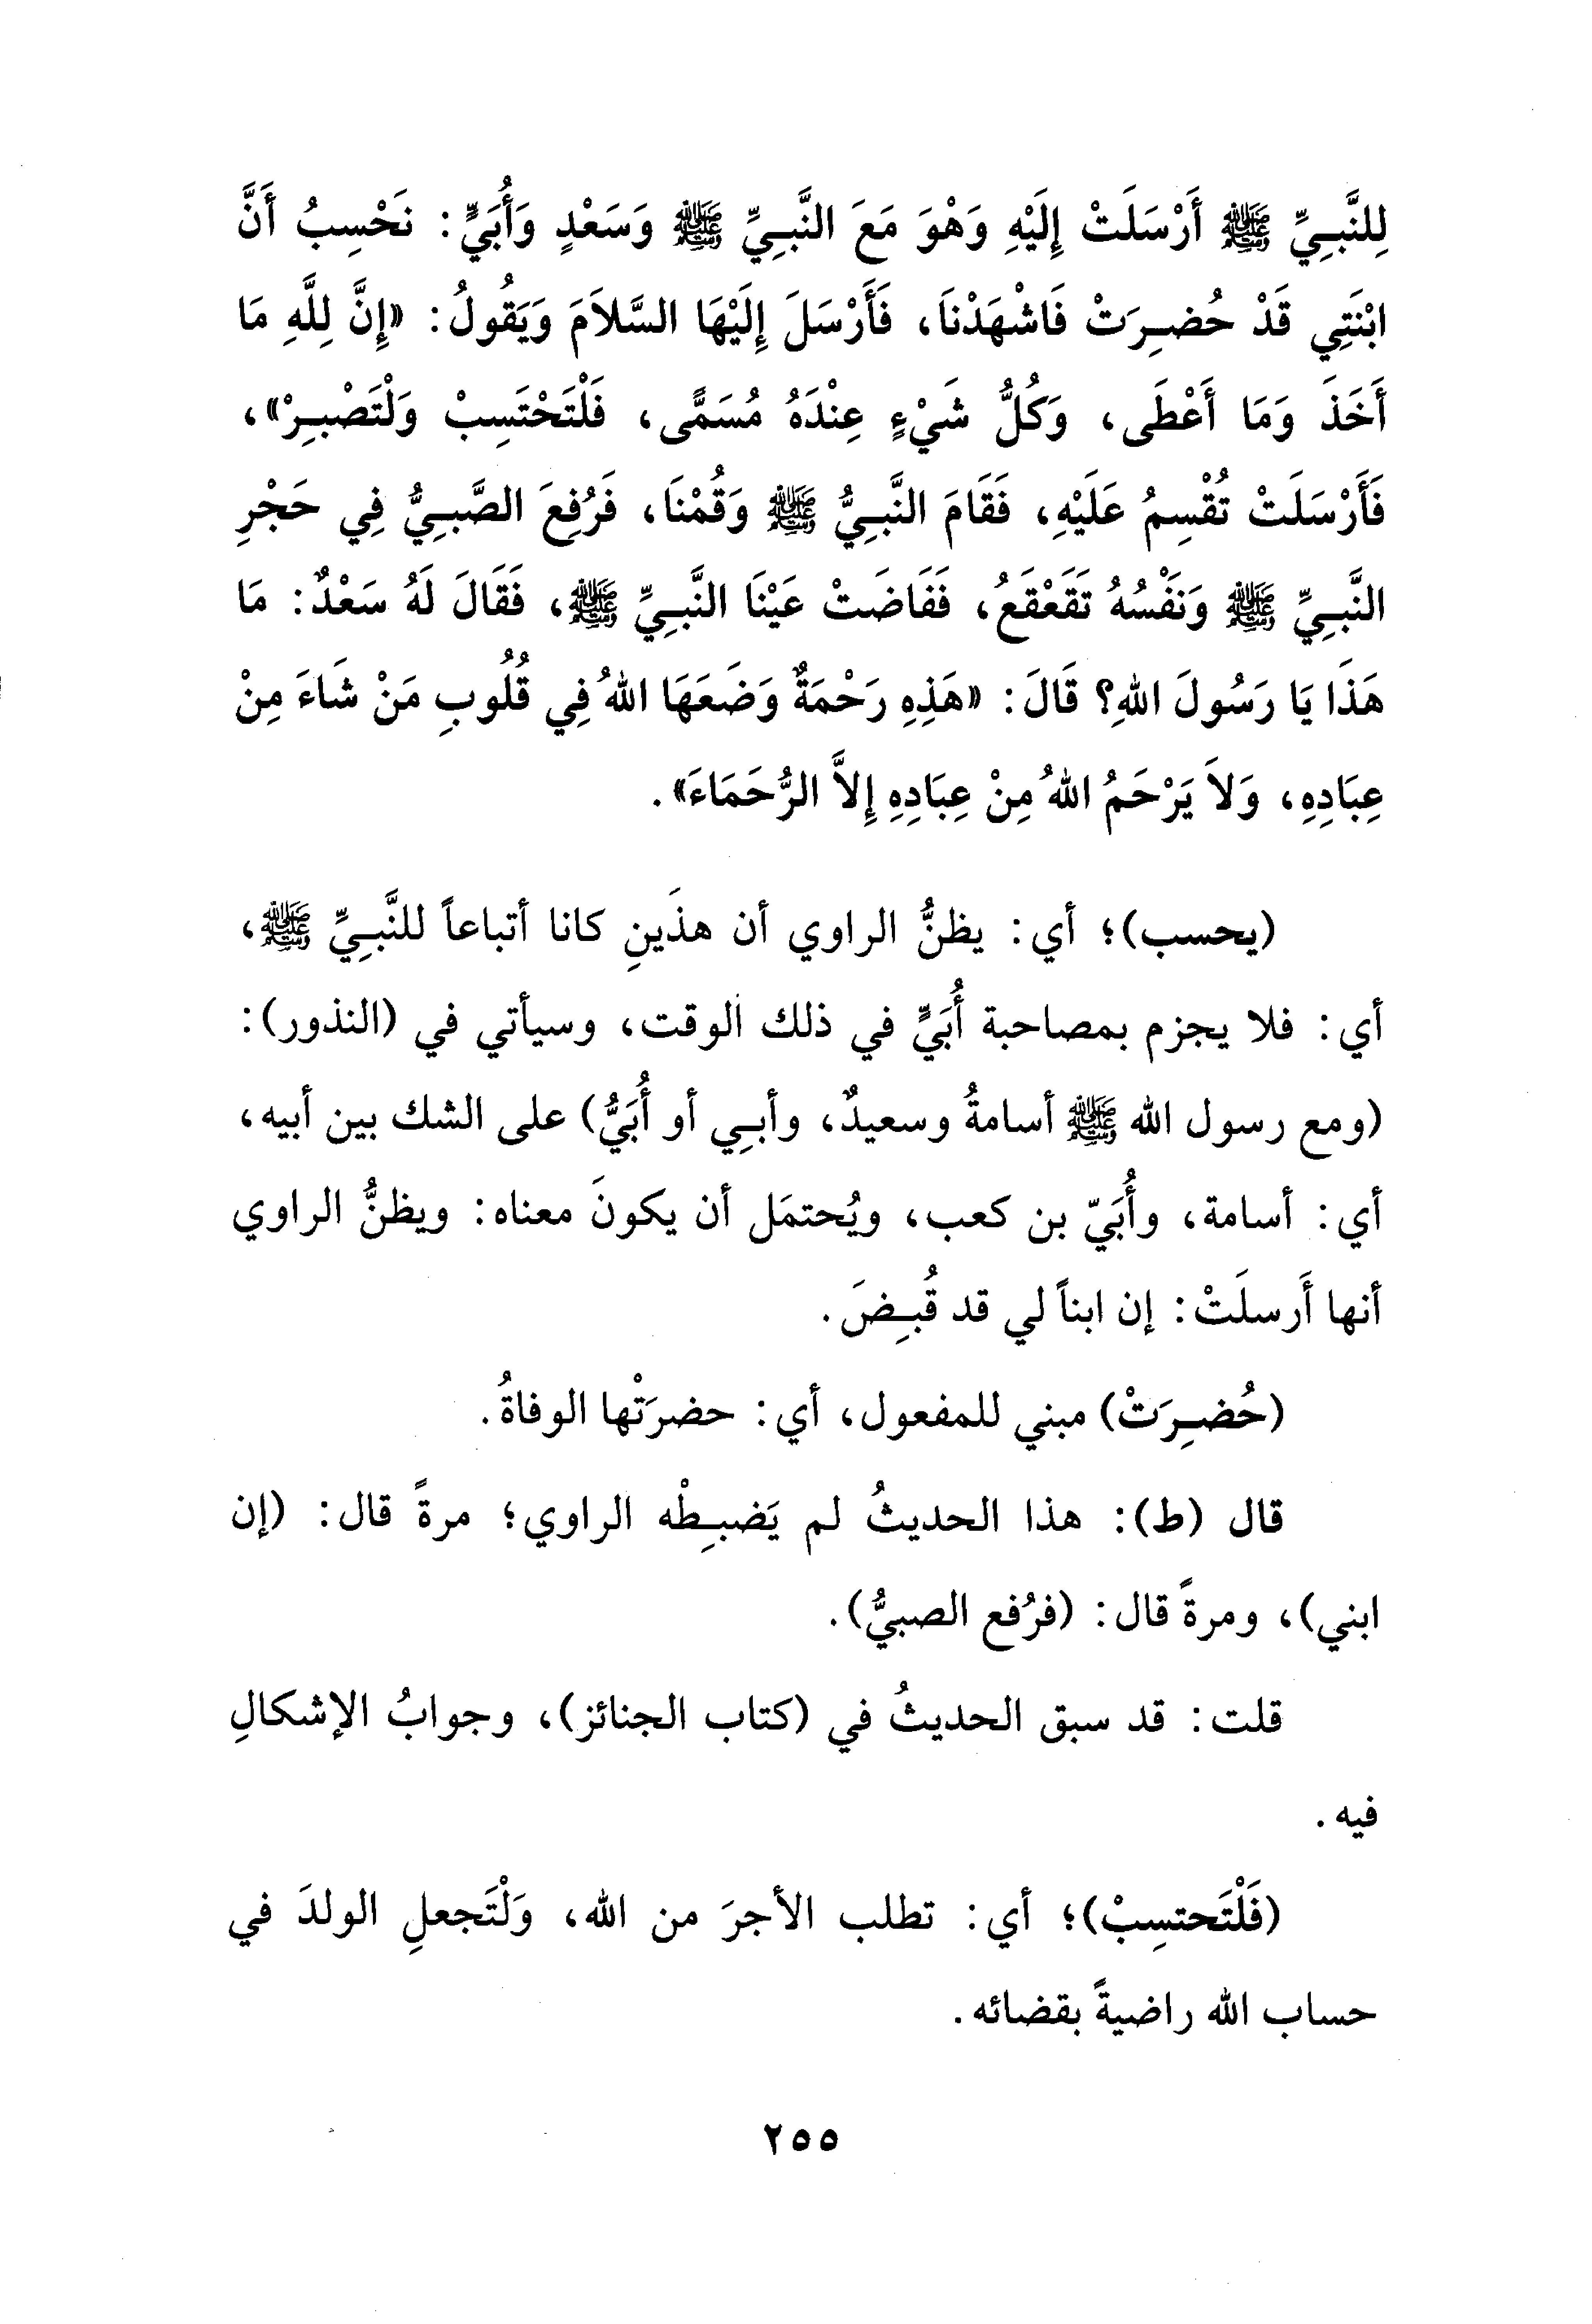 لِلنَّبِيِّ ﷺ أَرْسَلَتْ إِلَيْهِ وَهْوَ مَعَ النَّبِيِّ ﷺ وَسَعْدٍ وَأُبَيٍّ: نَحْسِبُ أَنَّ
ابْنَتِي قَدْ حُضِرَتْ فَاشْهَدْنَا، فَأَرْسَلَ إِلَيْهَا السَّلاَمَ وَيَقُولُ: «إِنَّ لِلَّهِ مَا
أَخَذَ وَمَا أَعْطَى، وَكُلُّ شَيْءٍ عِنْدَهُ مُسَمًّى، فَلْتَحْتَسِبْ وَلْتَصْبِرْ»،
فَأَرْسَلَتْ تُقْسِمُ عَلَيْهِ، فَقَامَ النَّبِيُّ ﷺ وَقُمْنَا، فَرُفِعَ الصَّبِيُّ فِي حَجْرِ
النَّبِيِّ ﷺ وَنَفْسُهُ تَقَعْقَعُ، فَفَاضَتْ عَيْنَا النَّبِيِّ ﷺ، فَقَالَ لَهُ سَعْدٌ: مَا
هَذَا يَا رَسُولَ اللهِ؟ قَالَ: «هَذِهِ رَحْمَةٌ وَضَعَهَا اللهُ فِي قُلُوبِ مَنْ شَاءَ مِنْ
عِبَادِهِ، وَلاَ يَرْحَمُ اللهُ مِنْ عِبَادِهِ إِلاَّ الرُّحَمَاءَ».
(يحسب)؛ أي: يظنُّ الراوي أن هذَينِ كانا أتباعاً للنَّبِيِّ ﷺ،
أي: فلا يجزم بمصاحبة أُبَيٍّ في ذلك الوقت، وسيأتي في (النذور):
(ومع رسول الله ﷺ أسامةُ وسعيدٌ، وأبِي أو أُبَيُّ) على الشك بين أبيه،
أي: أسامة، وأُبَيّ بن كعب، ويُحتمَل أن يكونَ معناه: ويظنُّ الراوي
أنها أَرسلَتْ: إن ابناً لي قد قُبِضَ.
(حُضِرَتْ) مبني للمفعول، أي: حضرَتْها الوفاةُ.
قال (ط): هذا الحديثُ لم يَضبِطْه الراوي؛ مرةً قال: (إن
ابني)، ومرةً قال: (فرُفع الصبيُّ).
قلت: قد سبق الحديثُ في (كتاب الجنائز)، وجوابُ الإشكالِ
فيه.
(فَلْتَحتسِبْ)؛ أي: تطلب الأجرَ من الله، وَلْتَجعلِ الولدَ في
حساب الله راضيةً بقضائه.
٢٥٥